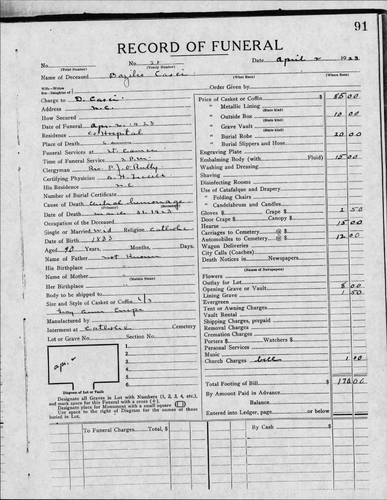 91
RECORD OF FUNERAL
No. (Total Number) No. 21 (Yearly Number) Date April 2 1923
Name of Deceased (What Race) (Where Born)
Wife—Widow
Son—Daughter of Order Given by
Charge to D. Price of Casket or Coffin $ 85 00
Address " Metallic Lining (State kind)
How Secured " Outside Box (State kind) 10 00
Date of Funeral Apr 2, 1923 " Grave Vault (State kind)
Residence Co Hospital " Burial Robe (State kind) 20 00
Place of Death " Burial Slippers and Hose
Funeral Services at Engraving Plate
Time of Funeral Service 2 P.M. Embalming Body (with Fluid) 15 00
Clergyman Rev. P. J. Washing and Dressing
Certifying Physician Shaving
His Residence Disinfecting Rooms
Number of Burial Certificate Use of Catafalque and Drapery
Cause of Death (Primary) (Secondary) " Folding Chairs
Date of Death March 31, 1923 " Candelabrum and Candles
Occupation of the Deceased Gloves $ Crape $ 2 50
Single or Married Wid Religion Catholic Door Crape $ Canopy $
Date of Birth 1833 Hearse 15 00
Aged 90 Years, Months, Days. Carriages to Cemetery @ $
Name of Father not Known Automobiles to Cemetery @ $ 12 00
His Birthplace Wagon Deliveries
Name of Mother (Maiden Name) City Calls (Coaches)
Her Birthplace Death Notices in Newspapers (Names of Newspapers)
Body to be shipped to Flowers
Size and Style of Casket or Coffin 6/3 Outlay for Lot
Opening Grave or Vault 8 00
Lining Grave 1 50
Manufactured by Evergreen
Interment at Catholic Cemetery Tent or Awning Charges
Lot or Grave No. Section No. Vault Rental
Shipping Charges, prepaid
1. Removal Charges
2. Cremation Charges
3. Porters $ Watchers $
4. Personal Services
5. Music
6. Church Charges
Diagram of Lot or Vault
Designate all Graves in Lot with Numbers (1, 2, 3, 4, etc.), and mark space for this Funeral with a cross (+).
Designate place for Monument with a small square (□)
Use space to right of Diagram for the names of those buried in Lot.
Total Footing of Bill $
By Amount Paid in Advance
Balance
Entered into Ledger, page or below
To Funeral Charges. Total, $ By Cash $